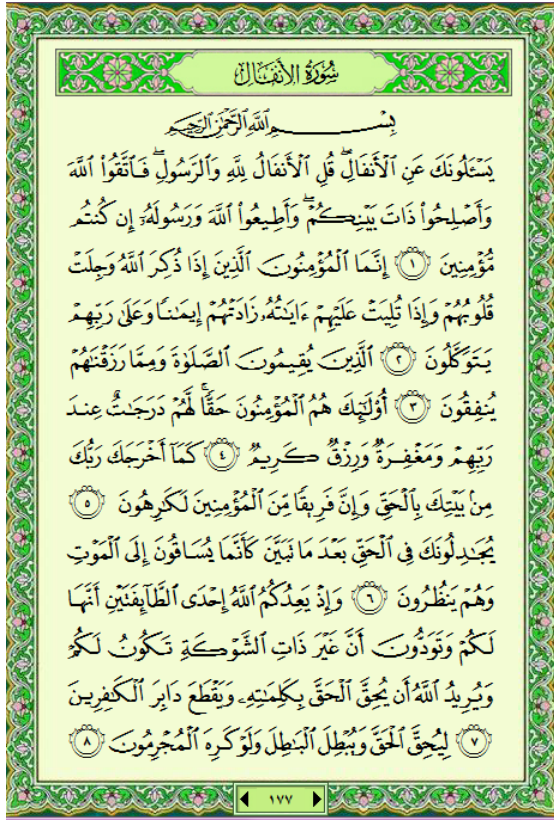 سُورَةُ الأَنفَالِ
بِسْمِ اللَّهِ الرَّحْمَٰنِ الرَّحِيمِ
يَسْـَٔلُونَكَ عَنِ الْأَنفَالِ ۖ قُلِ الْأَنفَالُ لِلَّهِ وَالرَّسُولِ ۖ فَاتَّقُوا اللَّهَ
وَأَصْلِحُوا ذَاتَ بَيْنِكُمْ ۖ وَأَطِيعُوا اللَّهَ وَرَسُولَهُۥٓ إِن كُنتُم
مُّؤْمِنِينَ ﴿١﴾ إِنَّمَا الْمُؤْمِنُونَ الَّذِينَ إِذَا ذُكِرَ اللَّهُ وَجِلَتْ
قُلُوبُهُمْ وَإِذَا تُلِيَتْ عَلَيْهِمْ ءَايَٰتُهُۥ زَادَتْهُمْ إِيمَٰنًا وَعَلَىٰ رَبِّهِمْ
يَتَوَكَّلُونَ ﴿٢﴾ الَّذِينَ يُقِيمُونَ الصَّلَوٰةَ وَمِمَّا رَزَقْنَٰهُمْ
يُنفِقُونَ ﴿٣﴾ أُو۟لَٰٓئِكَ هُمُ الْمُؤْمِنُونَ حَقًّا ۚ لَّهُمْ دَرَجَٰتٌ عِندَ
رَبِّهِمْ وَمَغْفِرَةٌ وَرِزْقٌ كَرِيمٌ ﴿٤﴾ كَمَآ أَخْرَجَكَ رَبُّكَ
مِنۢ بَيْتِكَ بِالْحَقِّ وَإِنَّ فَرِيقًا مِّنَ الْمُؤْمِنِينَ لَكَٰرِهُونَ ﴿٥﴾
يُجَٰدِلُونَكَ فِي الْحَقِّ بَعْدَ مَا تَبَيَّنَ كَأَنَّمَا يُسَاقُونَ إِلَى الْمَوْتِ
وَهُمْ يَنظُرُونَ ﴿٦﴾ وَإِذْ يَعِدُكُمُ اللَّهُ إِحْدَى الطَّآئِفَتَيْنِ أَنَّهَا
لَكُمْ وَتَوَدُّونَ أَنَّ غَيْرَ ذَاتِ الشَّوْكَةِ تَكُونُ لَكُمْ
وَيُرِيدُ اللَّهُ أَن يُحِقَّ الْحَقَّ بِكَلِمَٰتِهِۦ وَيَقْطَعَ دَابِرَ الْكَٰفِرِينَ
﴿٧﴾ لِيُحِقَّ الْحَقَّ وَيُبْطِلَ الْبَٰطِلَ وَلَوْ كَرِهَ الْمُجْرِمُونَ ﴿٨﴾
١٧٧